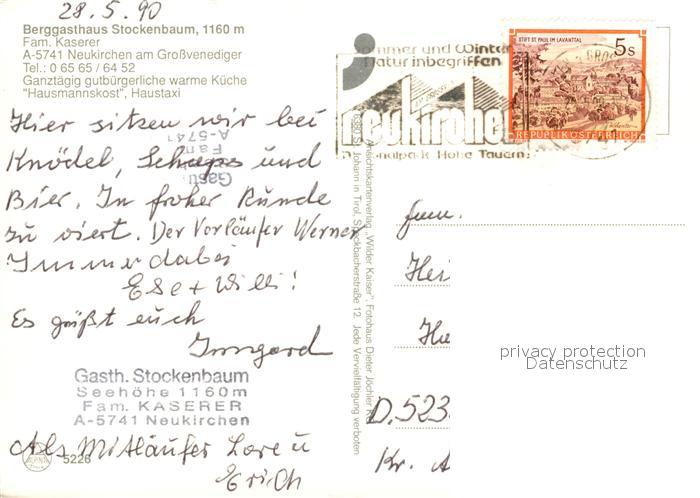 28.5.90
Berggasthaus Stockenbaum, 1160 m
Fam. Kaserer
A-5741 Neukirchen am Großvenediger
Tel.: 0 65 65 / 64 52
Ganztägig gutbürgerliche warme Küche
"Hausmannskost", Haustaxi
Hier sitzen wir bei
Knödel, Schnaps und
Bier. In froher Runde
zu viert. Der Vorläufer Werner
Immer dabei
Else + Willi!
Es grüßt euch
Irmgard
Gasth. Stockenbaum
Seehöhe 1160m
Fam. KASERER
A-5741 Neukirchen
Als Mitläufer Lore u
Erich
5226
Ansichtskartenverlag „Wilder Kaiser", Fotohaus Dieter Jöchler
6380 St. Johann in Tirol, Speckbacherstraße 12. Jede Vervielfältigung verboten
Sommer und Winter
Natur inbegriffen
neukirchen
Nationalpark Hohe Tauern
STIFT ST. PAUL IM LAVANTTAL
5 S
REPUBLIK ÖSTERREICH
Fam.
Hei
He
D. 523
Kr. A
privacy protection
Datenschutz